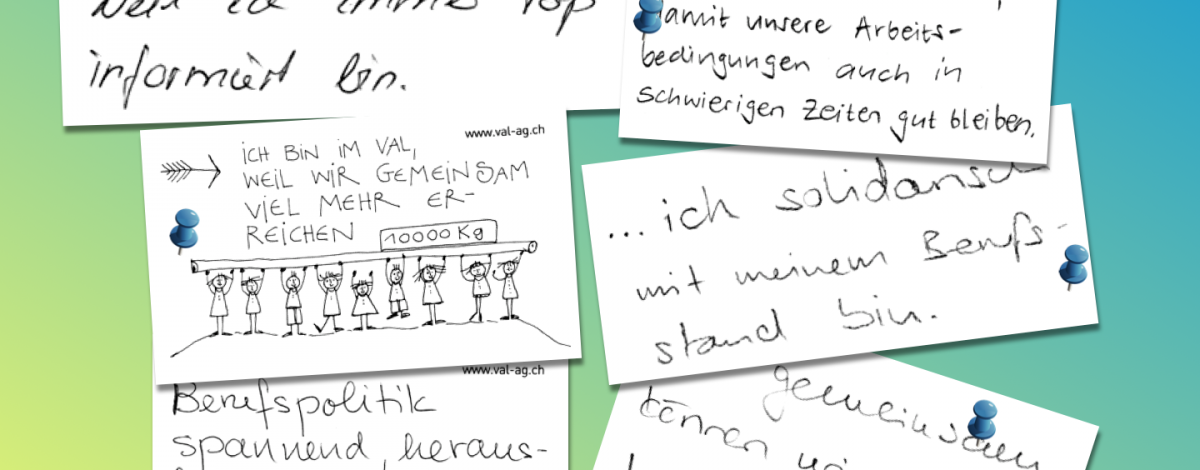 weil ich immer top
informiert bin.
damit unsere Arbeits-
bedingungen auch in
schwierigen Zeiten gut bleiben.
www.val-ag.ch
ICH BIN IM VAL,
WEIL WIR GEMEINSAM
VIEL MEHR ER-
REICHEN
10000 Kg
...ich solidarisch
mit meinem Berufs-
stand bin.
www.val-ag.ch
Berufspolitik
spannend, heraus-
gemeinsam
können wir